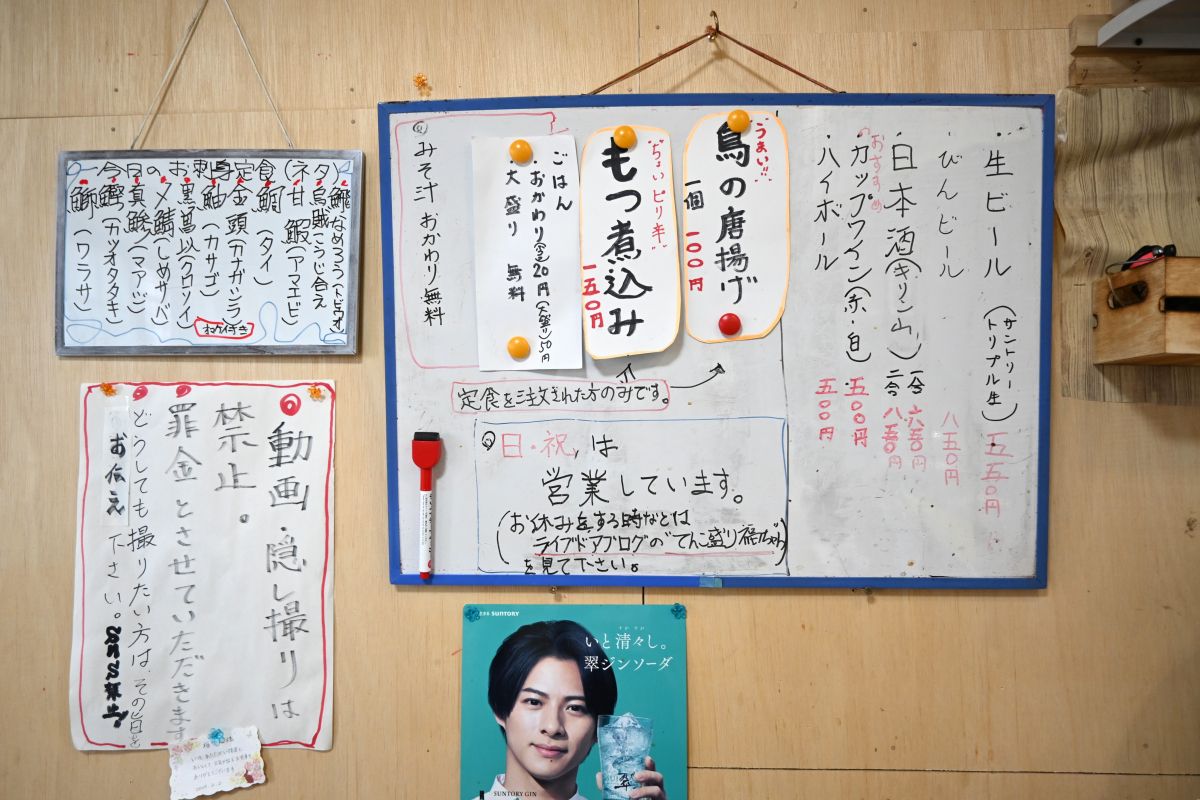 今日のお刺身定食(ネタ)
鰤なめろう(トビウオ
烏賊(こうじ合え
甘鰕(アマエビ)
鯛(タイ)
金頭(カナガシラ)
鮋(カサゴ)
黒葛以(クロソイ)
〆鯖(しめサバ)
真鯵(マアジ)
鰹(カツオタタキ)
鰤(ワラサ)
生ビール(サントリートリプル生)五五〇円
びんビール 八五〇円
日本酒(キリン山)一合 六五〇円
二合 八五〇円
おすすめ
カップワイン(赤・白)五〇〇円
ハイボール 五〇〇円
うまい!!
鳥の唐揚げ
一個 一〇〇円
"ちょいピリ辛"
もつ煮込み
一五〇円
ごはん
・おかわり(定)20円(大盛り)50円
・大盛り 無料
みそ汁 おかわり無料
定食を注文された方のみです。
日・祝、は
営業しています。
(お休みをする時などは
ライブドアブログの"てんこ盛り福ちゃん)
を見て下さい。
動画・隠し撮りは
禁止。
罪金とさせていただきます
どうしても撮りたい方は、その旨を
お伝え下さい。
SUNTORY
いと清々し。
翠ジンソーダ
翠
SUNTORY GIN